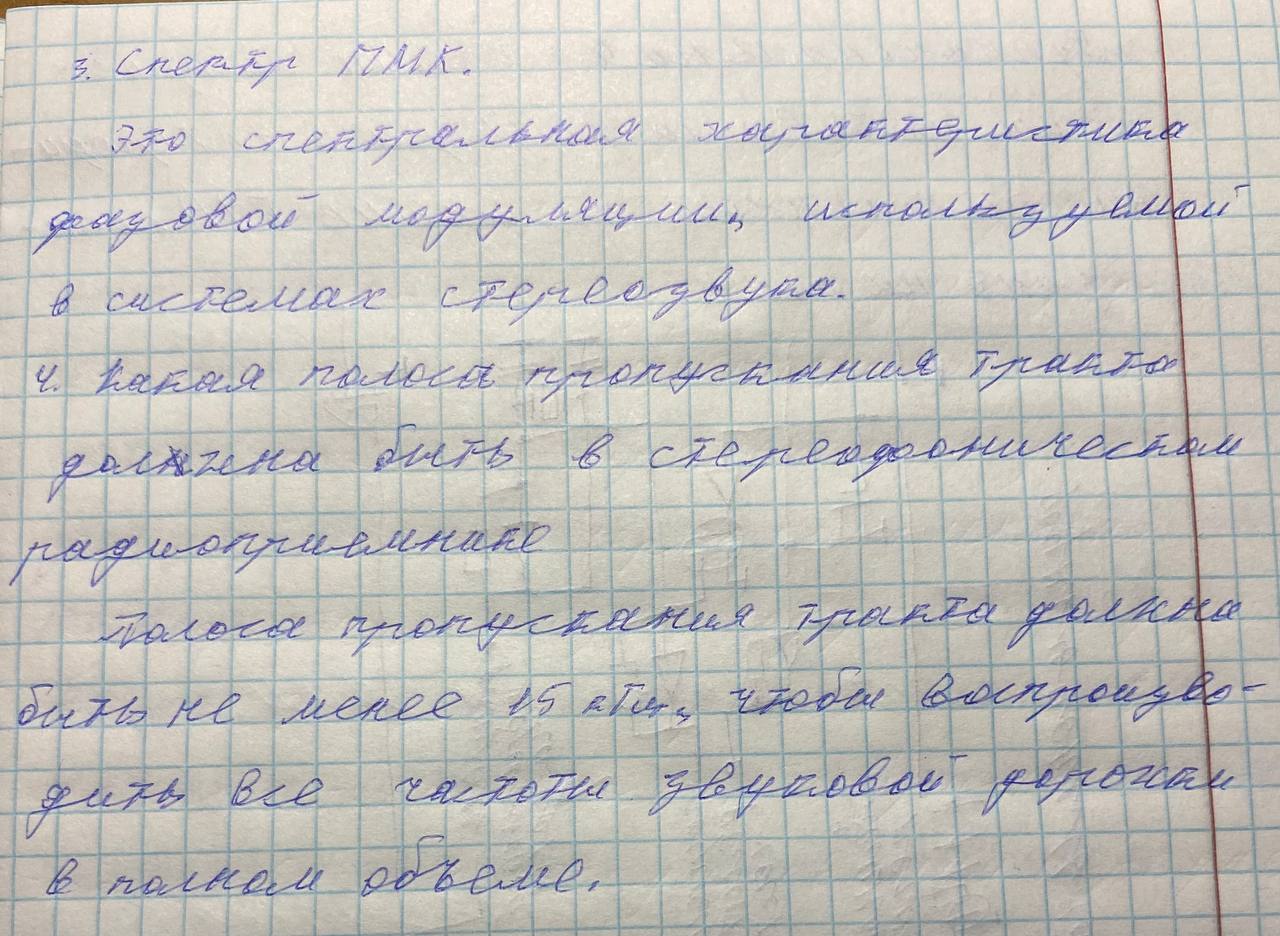 3. Спектр ПМК.
Это спектральная характеристика
фазовой модуляции, используемой
в системах стереозвука.
4. Какая полоса пропускания тракта
должна быть в стереофоническом
радиоприемнике
Полоса пропускания тракта должна
быть не менее 15 кГц, чтобы воспроизво-
дить все частоты звуковой дорожки
в полном объеме.